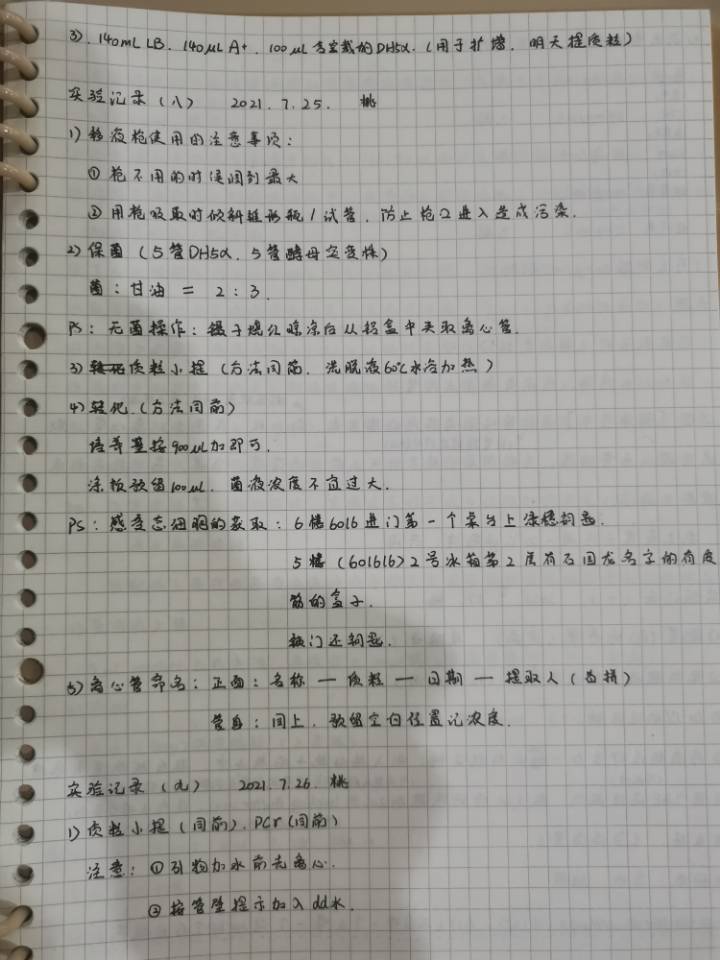 3). 140mL LB. 140μL A+. 100μL 含空载的DH5α.(用于扩增. 明天提质粒)
实验记录(八) 2021.7.25. 桃
1)移液枪使用的注意事项:
① 枪不用的时候调到最大
② 用枪吸取时倾斜锥形瓶/试管. 防止枪口进入造成污染.
2)保菌(5管DH5α. 5管酵母突变株)
菌:甘油 = 2:3.
PS:无菌操作:镊子烧红晾凉后从铝盒中夹取离心管.
3)质粒小提(方法同前. 洗脱液60℃水浴加热)
4)转化.(方法同前)
培养基按900μL加即可.
涂板敬留100μL. 菌液浓度不宜过大.
PS:感受态细胞的获取:6楼6016进门第一个桌子上拿钥匙.
5楼(601616)2号冰箱第2层有石国龙名字的有皮
筋的盒子.
锁门还钥匙.
5)离心管命名:正面:名称—质粒—日期—提取人(首拼)
管身:同上. 留空白位置记浓度.
实验记录(九) 2021.7.26. 桃
1)质粒小提(同前). PCr(同前)
注意:①引物加水前先离心.
②按管壁提示加入dd水.